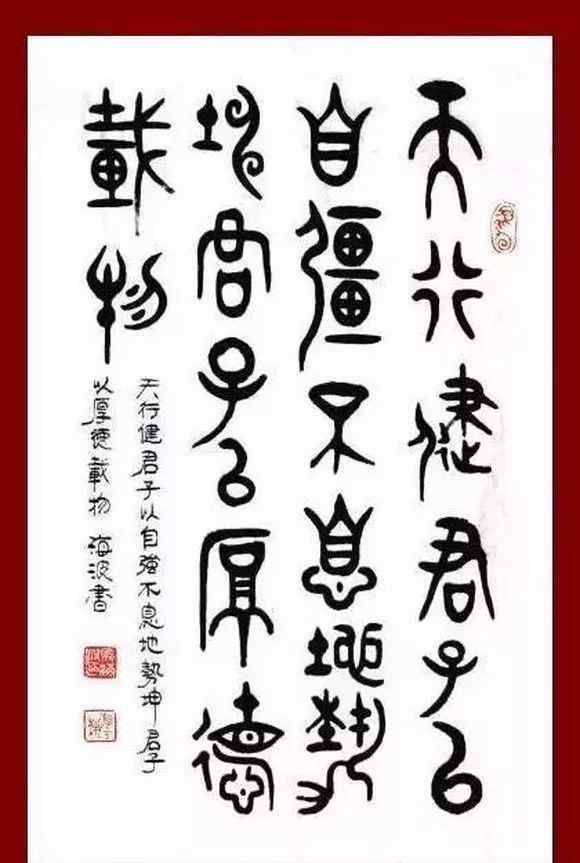 天行健君子以
自彊不息地勢
坤君子以厚德
載物
天行健君子以自強不息地勢坤君子
以厚德載物 海波書